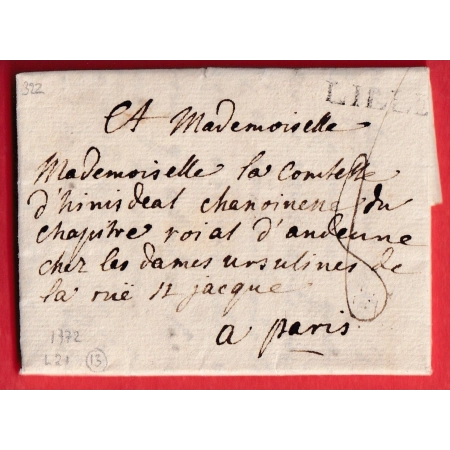 322
LILLE
A Mademoiselle
Mademoiselle la Comtesse
d'hinisdeal chanoinesse du
chapitre roial d'andenne
chez les dames ursulines de
la ruë st jacque
a paris
8
1772
L21 13